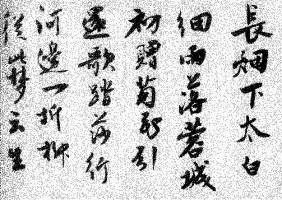 長烟下太白
細雨落蓉城
初贈菊引
歌踏莎行
河邊一折柳
從此梦云生